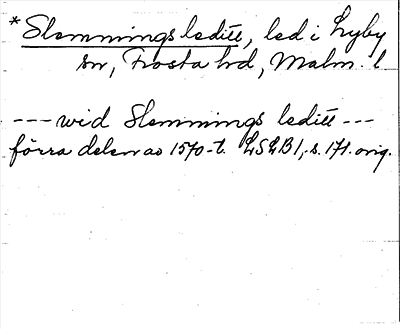 *Slemmings leditt, led i Lyby
sn, Frosta hd, Malm. l.
--- wid Slemmings leditt ---
förra delen av 1570-t. LSLB1, s. 171. orig.